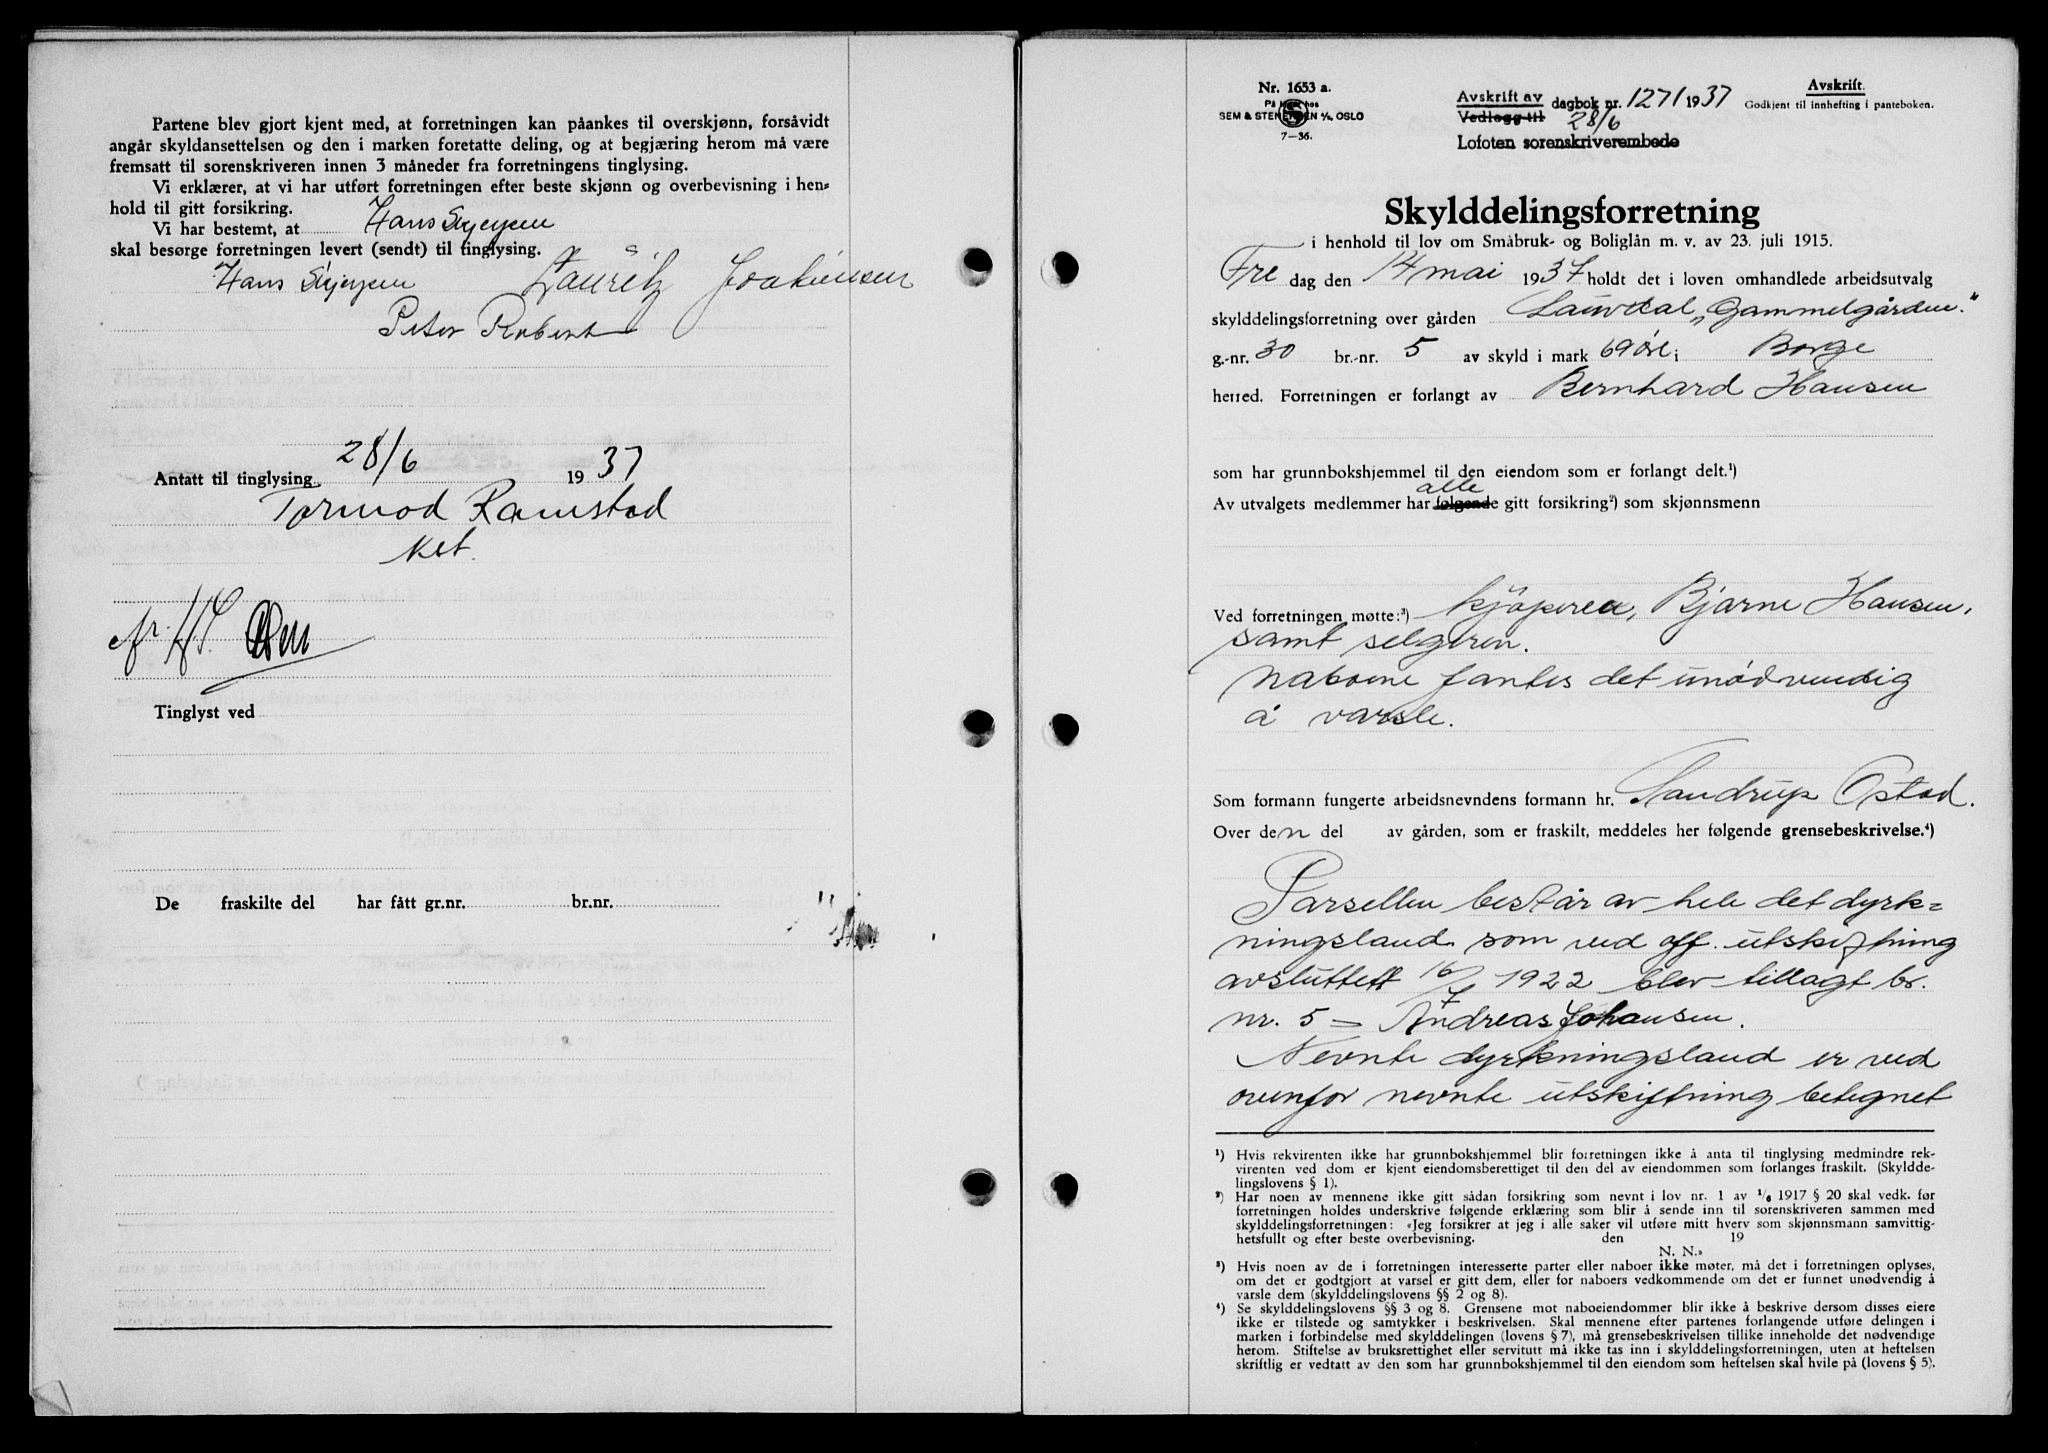 Partene blev gjort kjent med, at forretningen kan påankes til overskjønn, forsåvidt
angår skyldansettelsen og den i marken foretatte deling, og at begjæring herom må være
fremsatt til sorenskriveren innen 3 måneder fra forretningens tinglysing.
Vi erklærer, at vi har utført forretningen efter beste skjønn og overbevisning i hen-
hold til gitt forsikring.
Vi har bestemt, at Hans
skal besørge forretningen levert (sendt) til tinglysing.
Hans Lauritz Joakimsen
Peter Robert
Antatt til tinglysing 28/6 1937
Tormod Ramstad
kst.
Tinglyst ved
De fraskilte del har fått gr.nr. br.nr.
Nr. 1653 a.
På lager hos
SEM & STENERSEN A/S, OSLO
7-36.
Avskrift av dagbok nr. 1271 1937
Vedlegg til 28/6
Lofoten sorenskriverembede
Avskrift.
Godkjent til innhefting i panteboken.
Skylddelingsforretning
i henhold til lov om Småbruk- og Boliglån m. v. av 23. juli 1915.
Fre dag den 14 mai 1937 holdt det i loven omhandlede arbeidsutvalg
skylddelingsforretning over gården Lauvdal „Gammelgården"
g.-nr. 30 br.-nr. 5 av skyld i mark 69 øre i Borge
herred. Forretningen er forlangt av Bernhard Hansen
som har grunnbokshjemmel til den eiendom som er forlangt delt.¹)
alle
Av utvalgets medlemmer har følgende gitt forsikring²) som skjønnsmenn
Ved forretningen møtte:³) kjöperen, Bjarne Hansen,
samt selgeren.
Naboene fantes det unødvendig
å varsle.
Som formann fungerte arbeidsnevndens formann hr. Sandrup Ostad.
Over den del av gården, som er fraskilt, meddeles her følgende grensebeskrivelse.⁴)
Parsellen består av hele det dyrk=
ningsland som ved off. utskiftning
avsluttett 16/7 1922 blev tillagt br.
nr. 5 = Andreas Johansen.
Nevnte dyrkningsland er ved
ovenfor nevnte utskiftning betegnet
¹) Hvis rekvirenten ikke har grunnbokshjemmel blir forretningen ikke å anta til tinglysing medmindre rek-
virenten ved dom er kjent eiendomsberettiget til den del av eiendommen som forlanges fraskilt. (Skyldde-
lingslovens § 1).
²) Har noen av mennene ikke gitt sådan forsikring som nevnt i lov nr. 1 av 1/6 1917 § 20 skal vedk. før
forretningen holdes underskrive følgende erklæring som blir å sende inn til sorenskriveren sammen med
skylddelingsforretningen: «Jeg forsikrer at jeg i alle saker vil utføre mitt hverv som skjønnsmann samvittig-
hetsfullt og efter beste overbevisning. den 19
N. N.»
³) Hvis noen av de i forretningen interesserte parter eller naboer ikke møter, må det i forretningen oplyses,
om det er godtgjort at varsel er gitt dem, eller for naboers vedkommende om det er funnet unødvendig å
varsle dem (skylddelingslovens §§ 2 og 8).
⁴) Se skylddelingslovens §§ 3 og 8. Grensene mot naboeiendommer blir ikke å beskrive dersom disses eiere
ikke er tilstede og samtykker i beskrivelsen. Skal mennene efter partenes forlangende utføre delingen i
marken i forbindelse med skylddelingen (lovens § 7), må grensebeskrivelsen tillike inneholde det nødvendige
herom. Stiftelse av bruksrettighet eller servitutt må ikke tas inn i skylddelingsforretningen, uten at heftelsen
skriftlig er vedtatt av den som har grunnbokshjemmel til den eiendom som heftelsen skal hvile på (lovens § 5).